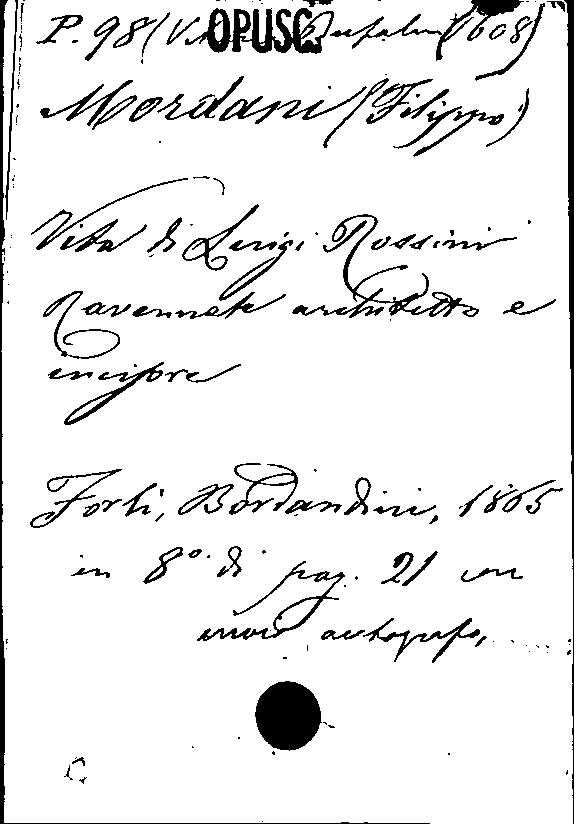 P. 98 (V. OPUSC. (1608)
Mordani (Filippo)
Vita di Luigi Rossini
Ravennate architetto e
incisore
Forlì, Bordandini, 1865
in 8° di pag. 21 con
invio autografo.
C